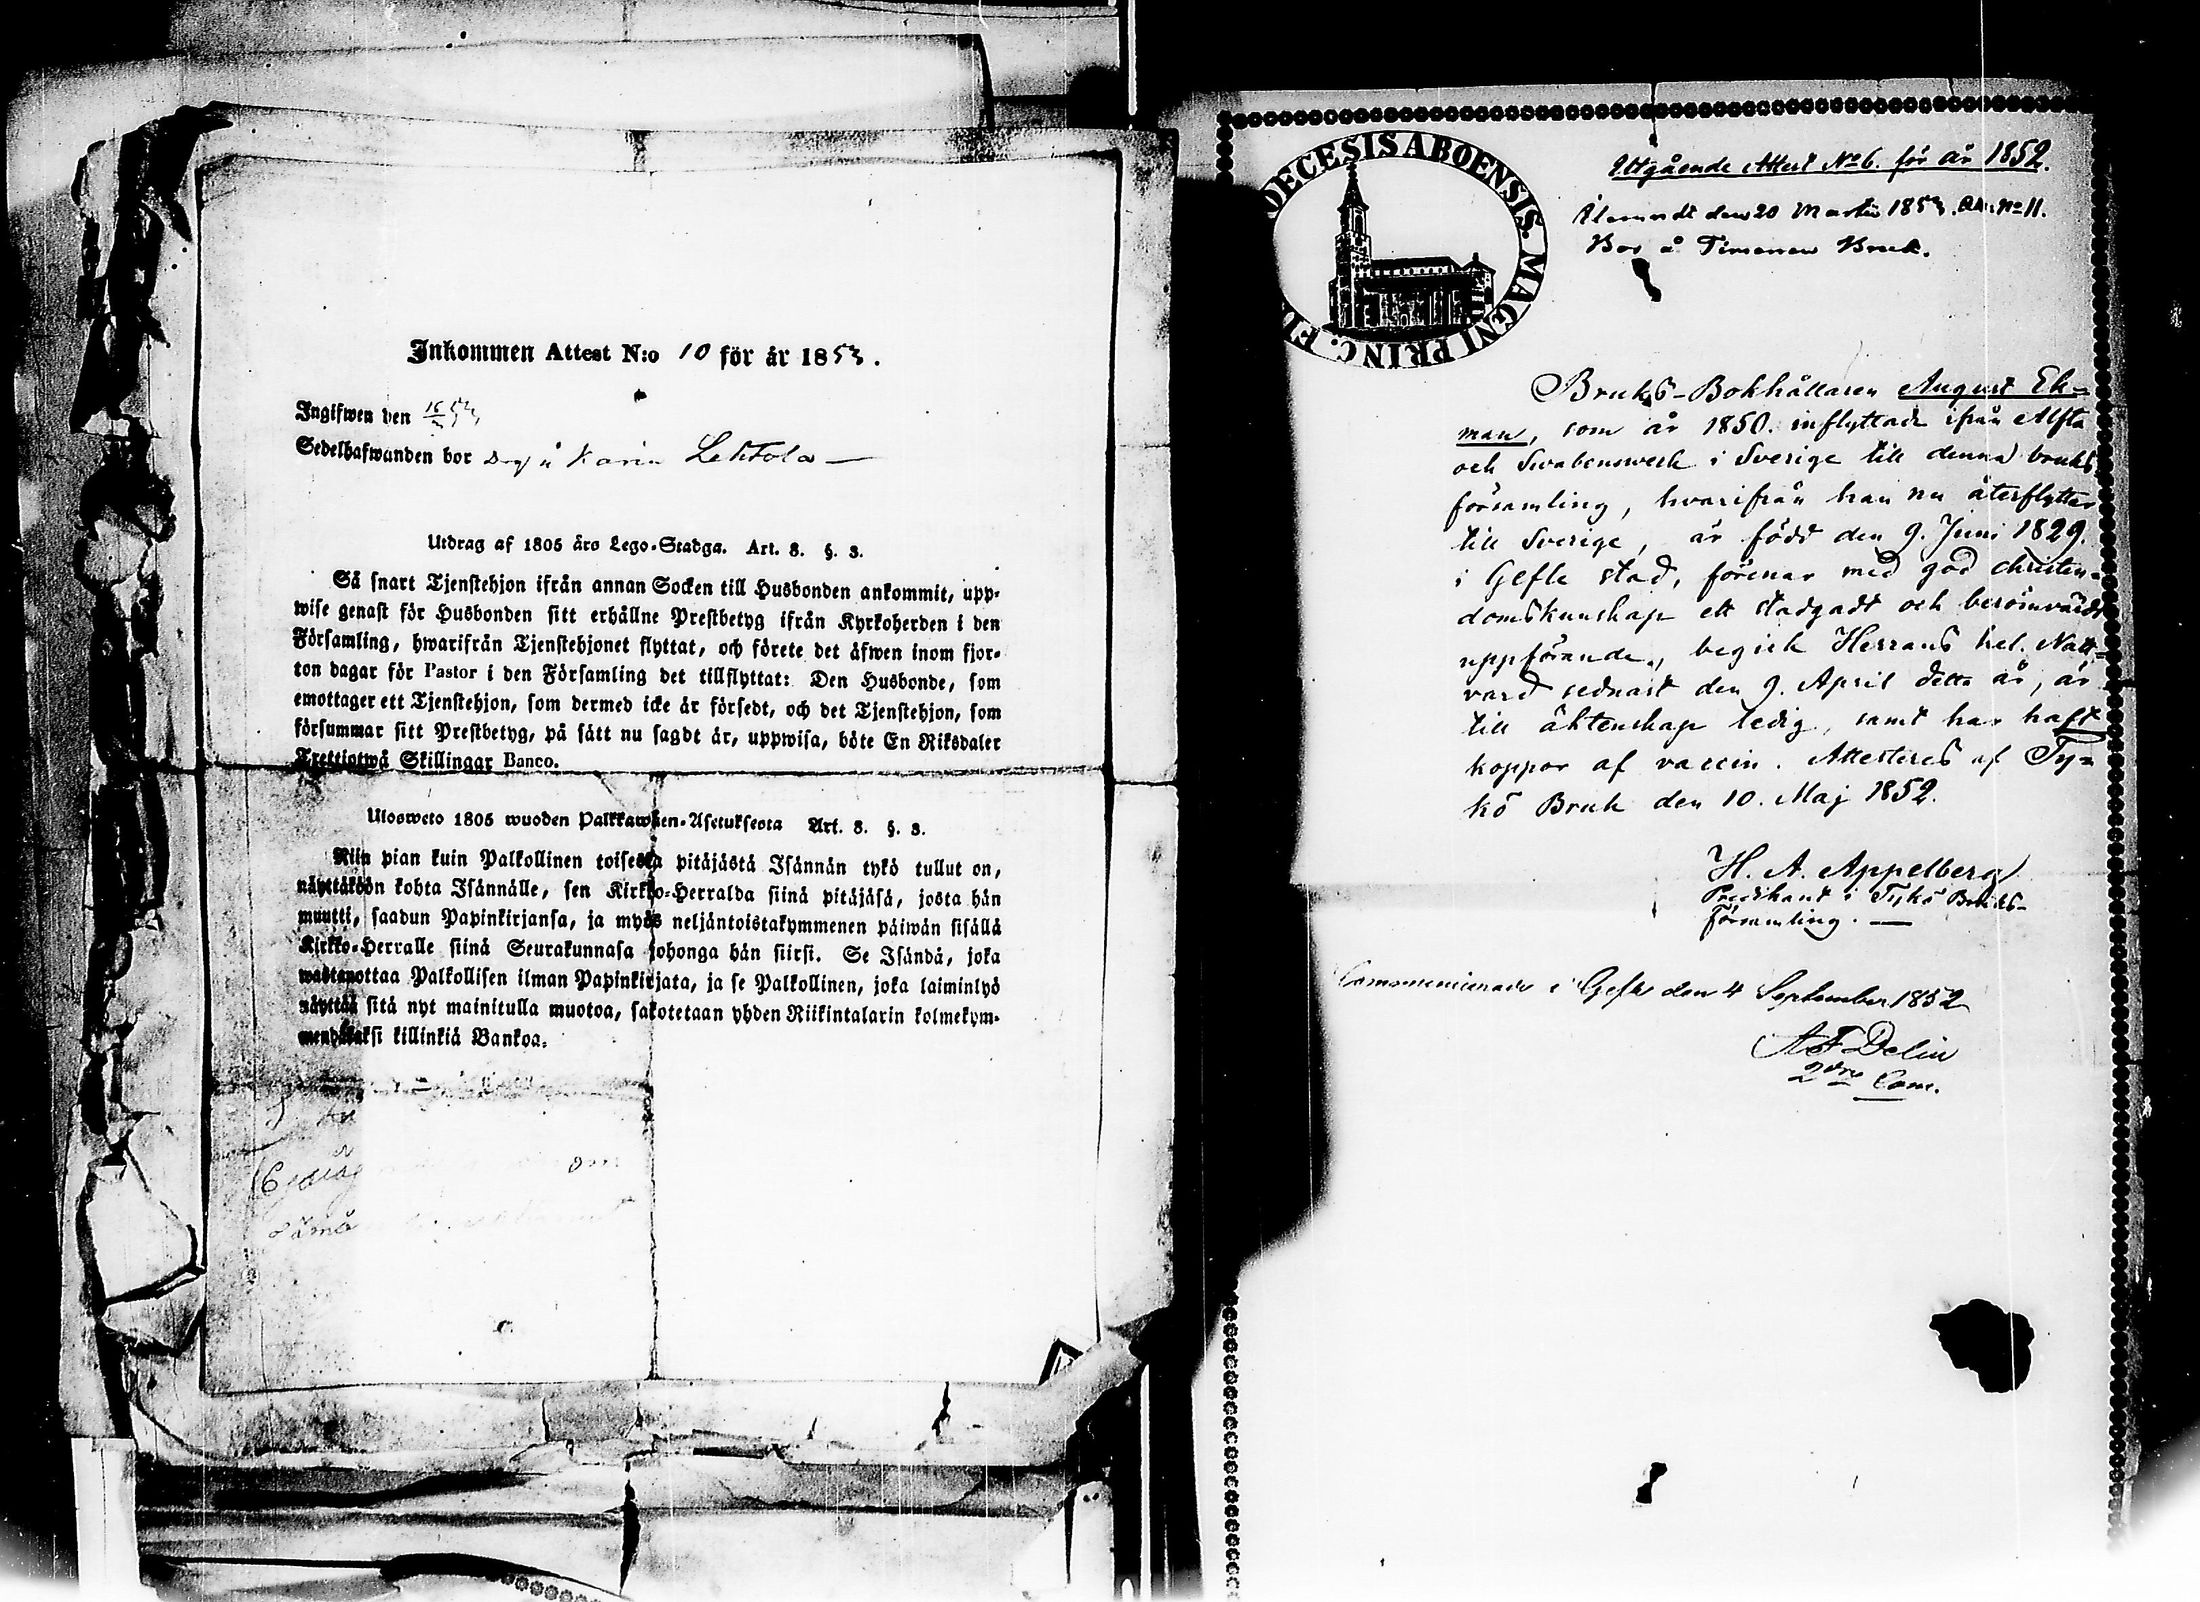 Inkommen Attest N:o 10 för år 1853.
Ingifwen den 16/3 53
Sedelhafwanden bor å Karin Lektola
Utdrag af 1805 års Lego-Stadga. Art. 8. §. 3.
Så snart Tjenstehjon ifrån annan Socken till Husbonden ankommit, upp-
wise genast för Husbonden sitt erhållne Prestbetyg ifrån Kyrkoherden i den
Församling, hwarifrån Tjenstehjonet flyttat, och förete det äfwen inom fjor-
ton dagar för Pastor i den Församling det tillflyttat: Den Husbonde, som
emottager ett Tjenstehjon, som dermed icke är försedt, och det Tjenstehjon, som
försummar sitt Prestbetyg, på sätt nu sagdt är, uppwisa, böte En Riksdaler
Trettiotwå Skillingar Banco.
Ulosweto 1805 wuoden Palkkawäen-Asetuksesta Art. 8. §. 3.
Niin pian kuin Palkollinen toisesta pitäjästä Isännän tykö tullut on,
näyttäköön kohta Isännälle, sen Kirkko-Herralda siinä pitäjäsä, josta hän
muutti, saadun Papinkirjansa, ja myös neljäntoistakymmenen päiwän sisällä
Kirkko-Herralle siinä Seurakunnasa johonga hän siirsi. Se Isändä, joka
wastanottaa Palkollisen ilman Papinkirjata, ja se Palkollinen, joka laiminlyö
näyttää sitä nyt mainitulla muotoa, sakotetaan yhden Riikintalarin kolmekym-
mendäkaksi killinkiä Bankoa.
DECESIS ABOENSIS. MAGNI PRINC. FI
Utgående Attest No 6. för år 1852.
den 20 Martii 1853. No 11.
Bor å Timonen Bruk.
Bruks-Bokhållaren August Ek=
man, som år 1850. inflyttade ifrån Alfta
och Swabenswerk i Sverige till denna bruks
församling, hvarifrån han nu återflyttar
till Sverige, är född den 9. Juni 1829.
i Gefle stad, förenar med god christen-
domskunskap ett stadgadt och berömvärdt
uppförande, begick Herrans hel. Natt=
vard sednast den 9. April detta år, är
till äktenskap ledig, samt har haft
koppor af vaccin. Attesteras af Ty=
kö Bruk den 10. Maj 1852.
H. A. Appelberg
Predikant i Tykö Bruks-
församling.
i Gefle den 4 September 1852
A F Delin
2dre Com.